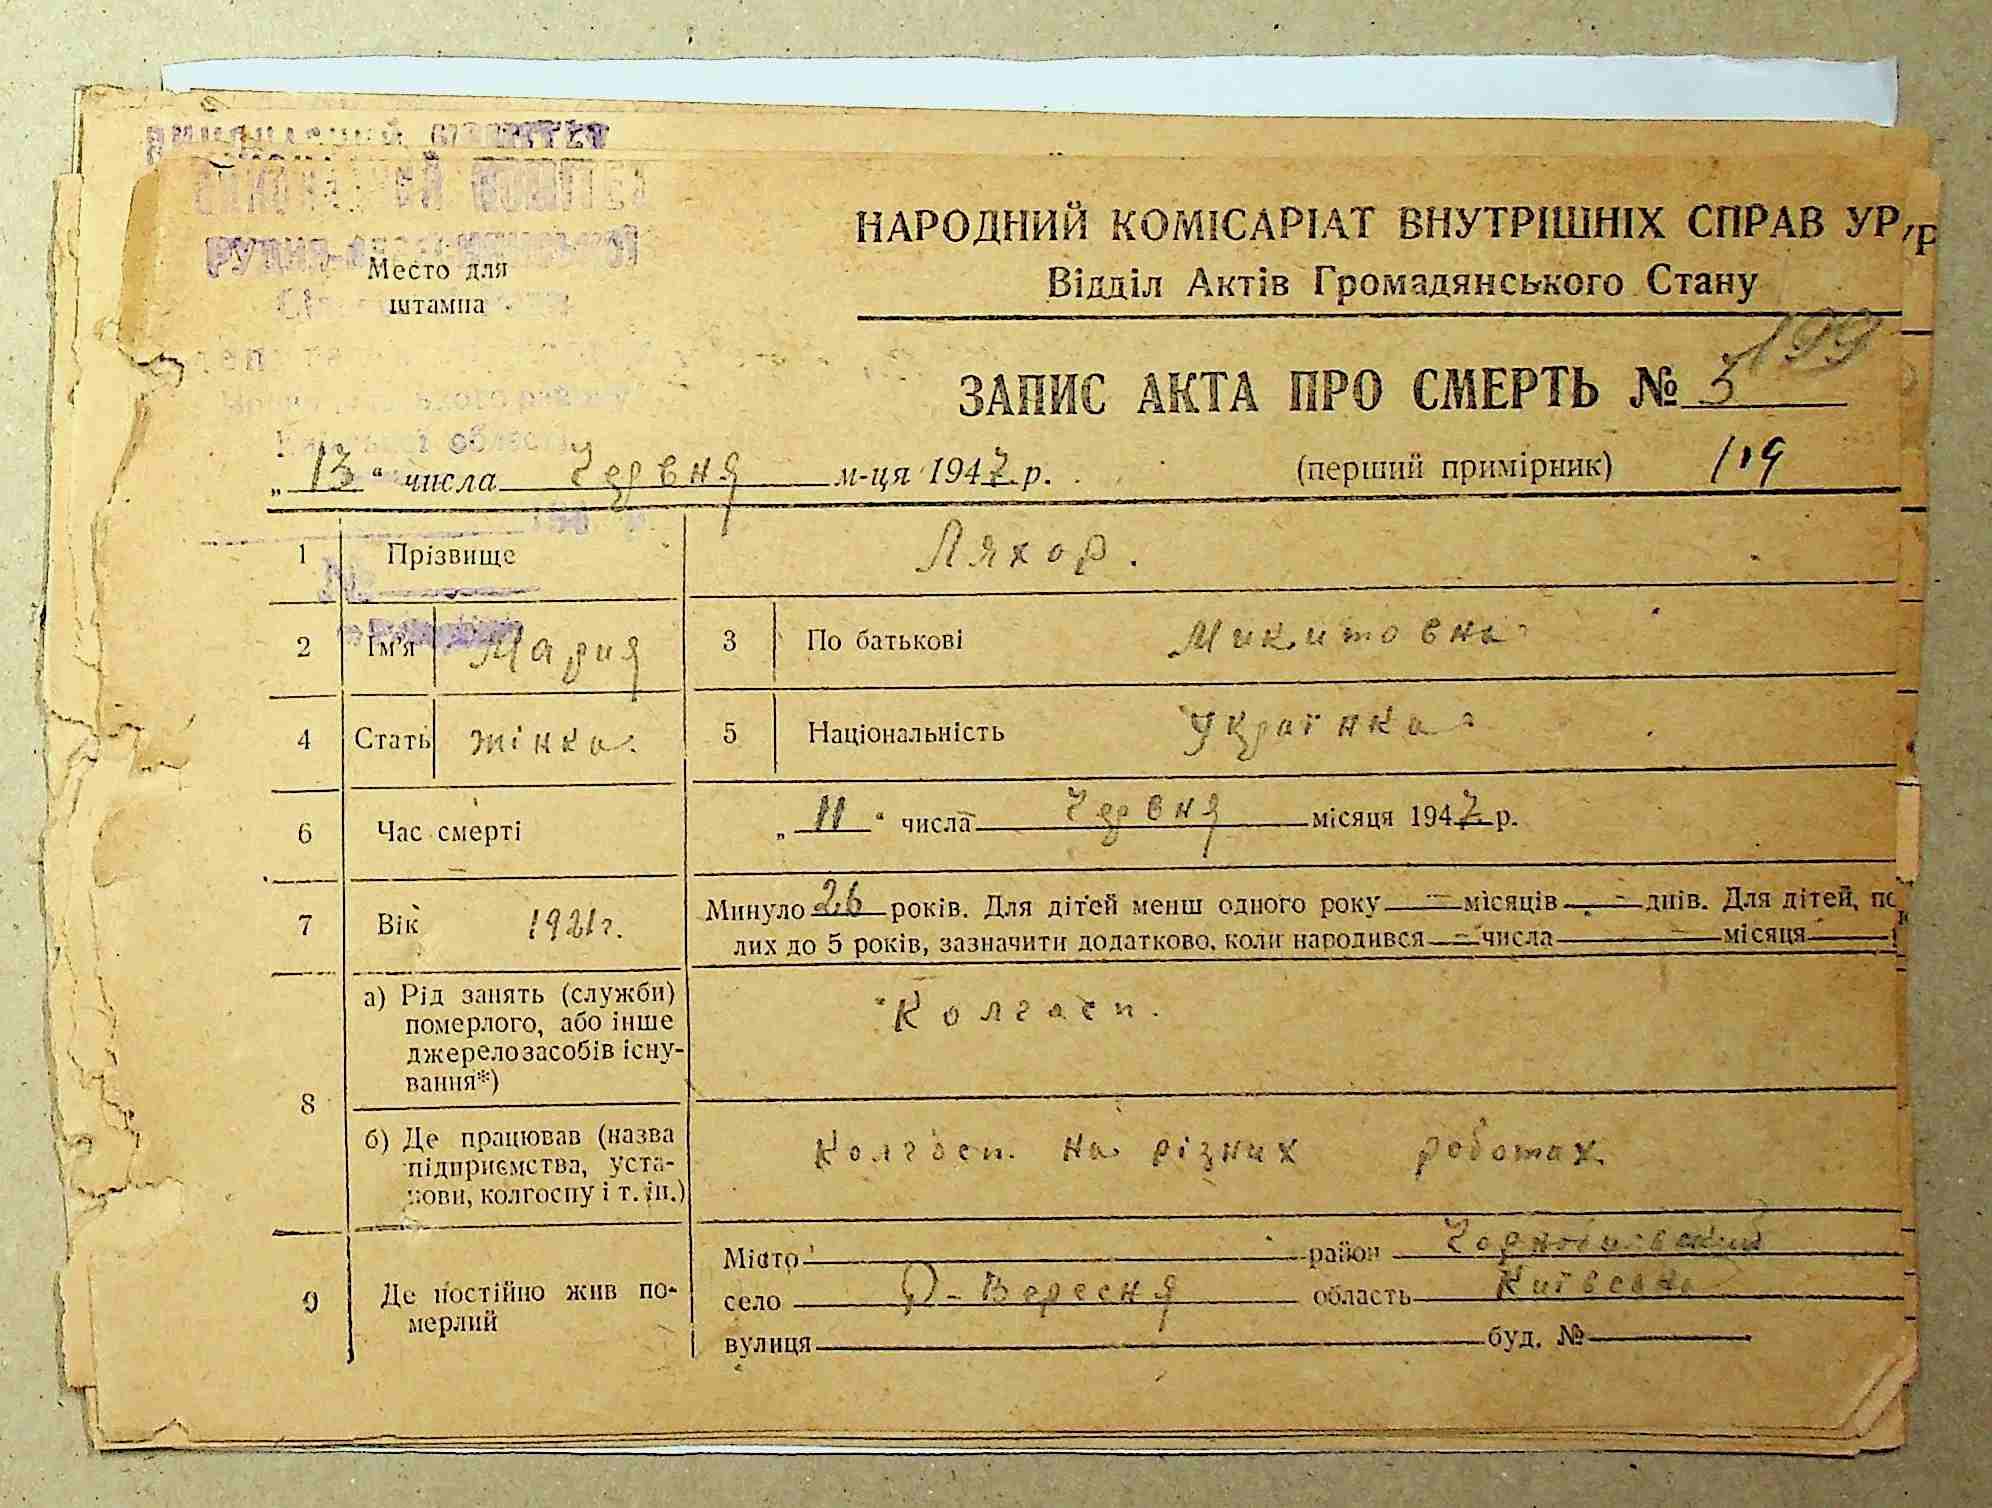 РУДНЯ-
Место для
штампа
області
НАРОДНИЙ КОМІСАРІАТ ВНУТРІШНІХ СПРАВ УР
Відділ Актів Громадянського Стану
199
ЗАПИС АКТА ПРО СМЕРТЬ № 5
„13“ числа Червня м-ця 1947 р. (перший примірник) 119
1 Прізвище Ляхор.
2 Ім'я Мария 3 По батькові Микитовна
4 Стать жінка. 5 Національність Українка
6 Час смерті „11“ числа Червня місяця 1947 р.
7 Вік 1921 г. Минуло 26 років. Для дітей менш одного року — місяців — днів. Для дітей, по
лих до 5 років, зазначити додатково, коли народився — числа місяця
8 а) Рід занять (служби)
померлого, або інше
джерело засобів існу-
вання*)
Колгосп.
б) Де працював (назва
підприємства, уста-
нови, колгоспу і т. ін.)
Колгосп. на різних роботах.
9 Де постійно жив по-
мерлий
Місто район Чорнобильский
село Р-Вересня область Київська
вулиця буд. №